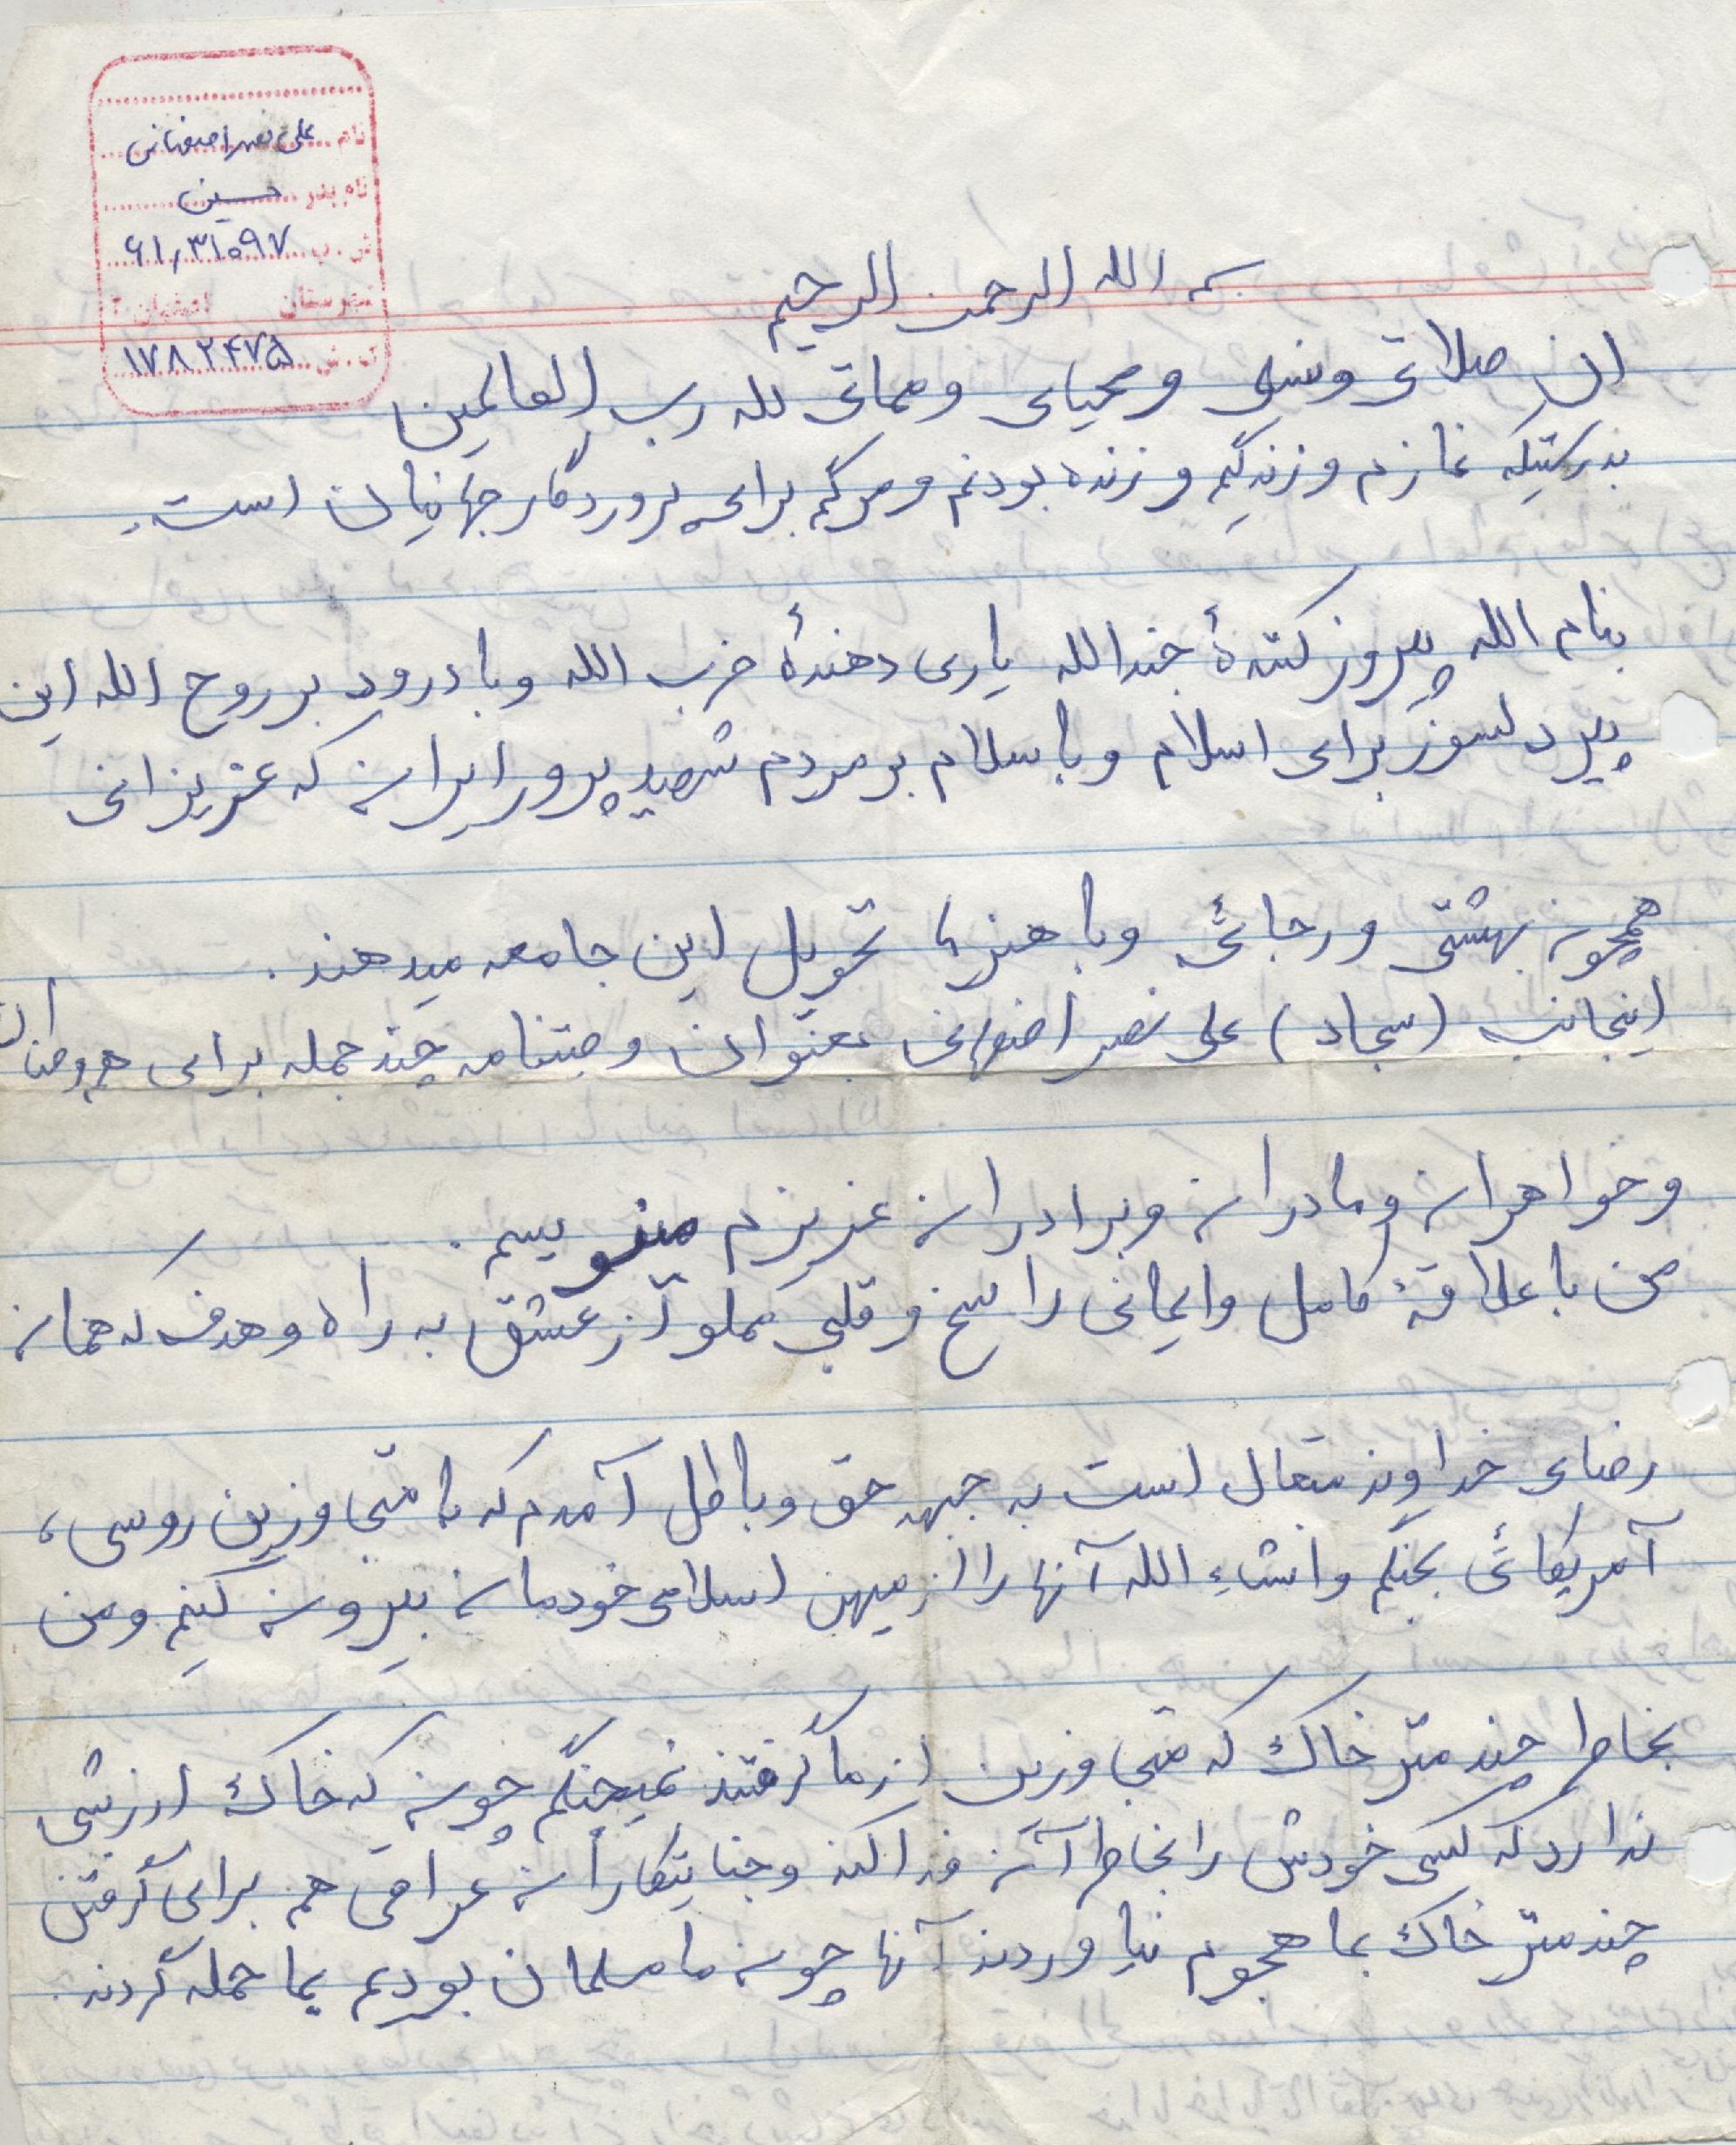 نام علی نصر اصفهانی
نام پدر حسین
ش.پ ۶۱٫۳۱۰۹۷
شهرستان اصفهان ۲
ک.ش ۱۷۸۲۴۷۵
بسم الله الرحمن الرحیم
ان صلاتی ونسکی ومحیای ومماتی لله رب العالمین
بدرستیکه نمازم وزندگیم وزنده بودنم ومرگم برای پروردگار جهانیان است.
بنام الله پیروز کنندۀ جندالله یاری دهندۀ حزب الله وبا درود بر روح الله این
پیر دلسوز برای اسلام وبا سلام بر مردم شهید پرور ایران که عزیزانی
همچون بهشتی ورجائی وباهنرها تحویل این جامعه میدهند.
اینجانب (سجاد) علی نصر اصفهانی بعنوان وصیتنامه چند جمله برای هموطنان
وخواهران ومادران وبرادران عزیزم مینویسم.
من با علاقۀ کامل وایمانی راسخ وقلبی مملو از عشق به راه وهدف که همان
رضای خداوند متعال است به جبهه حق وباطل آمدم که با متجاوزین روسی،
آمریکائی بجنگم وانشاء الله آنها را از میهن اسلامی خودمان بیرون کنیم ومن
بخاطر چند متر خاک که متجاوزین از ما گرفتند نمیجنگم چون که خاک ارزشی
ندارد که کسی خودش را بخاطر آن فدا کند وجنایتکاران عراقی هم برای گرفتن
چند متر خاک بما هجوم نیاوردند آنها چون ما مسلمان بودیم بما حمله کردند.